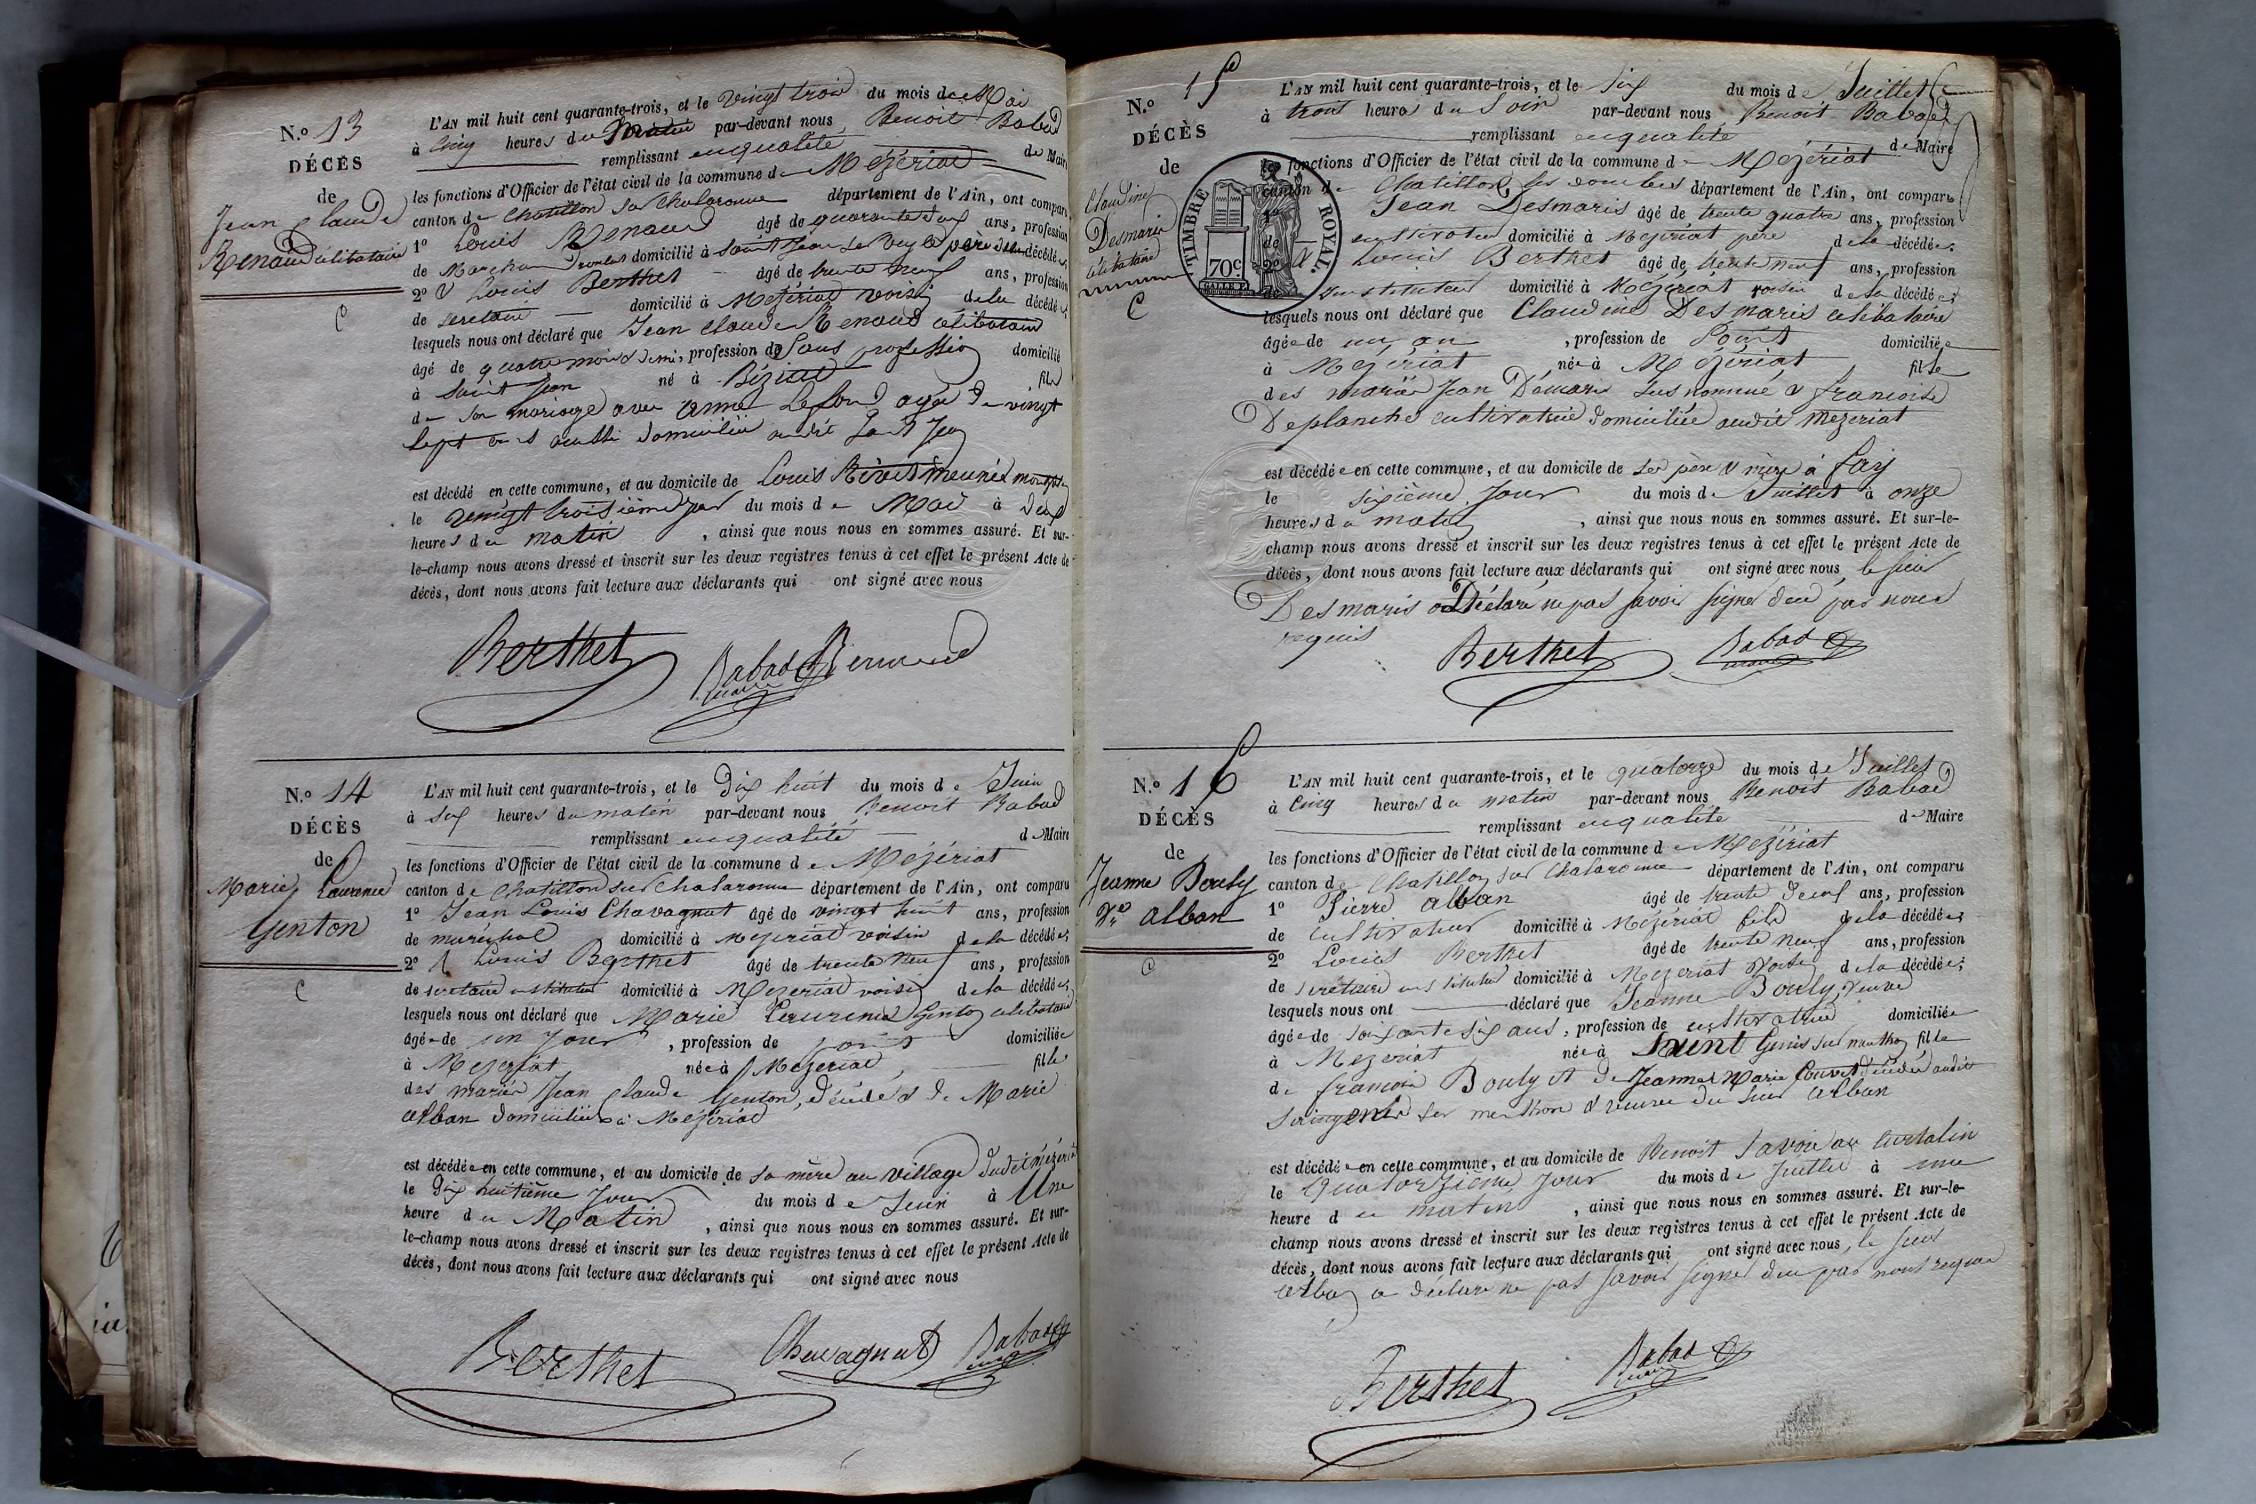 N.º 13
DÉCÈS
de
Jean Claude
Renaud célibataire
L'AN mil huit cent quarante-trois, et le vingt trois du mois de Mai
à cinq heures du matin par-devant nous Benoit Babad
remplissant en qualité de Maire
les fonctions d'Officier de l'état civil de la commune de Mézériat
canton de Chatillon sur Chalaronne département de l'Ain, ont comparu
1º Louis Renaud âgé de quarante deux ans, profession
de Marchand domicilié à Saint Jean sur Veyle père du décédé,
2º & Louis Berthet âgé de trente neuf ans, profession
de secretaire domicilié à Mézériat voisin de la décédé;
lesquels nous ont déclaré que Jean Claude Renaud célibataire
âgé de quatre mois & demi, profession de Sans profession domicilié
à Saint Jean né à Béziat fils
de son mariage avec Anne Lefond agée de vingt
sept ans aussi domiciliée audit Saint Jean
est décédé en cette commune, et au domicile de Louis Rivet meunié
le vingt troisième jour du mois de Mai à deux
heures du matin, ainsi que nous nous en sommes assuré. Et sur-
le-champ nous avons dressé et inscrit sur les deux registres tenus à cet effet le présent Acte de
décès, dont nous avons fait lecture aux déclarants qui ont signé avec nous
Berthet Babad maire Renaud
N.º 14
DÉCÈS
de
Marie Laurence
Genton
L'AN mil huit cent quarante-trois, et le dix huit du mois de Juin
à six heures du matin par-devant nous Benoit Babad
remplissant en qualité de Maire
les fonctions d'Officier de l'état civil de la commune de Mézériat
canton de Chatillon sur Chalaronne département de l'Ain, ont comparu
1º Jean Louis Chavagnat âgé de vingt huit ans, profession
de maréchal domicilié à Mezeriat voisin de la décédée;
2º & Louis Berthet âgé de trente neuf ans, profession
de secretaire instituteur domicilié à Mezeriat voisin de la décédée;
lesquels nous ont déclaré que Marie Laurence Genton celibataire
âgée de un jour, profession de point domiciliée
à Mezeriat née à Mezeriat, fille
des mariés Jean Claude Genton, décédé & de Marie
Alban domiciliée à Mézériat
est décédée en cette commune, et au domicile de sa mère au village dudit Mézériat
le dix huitième jour du mois de Juin à Une
heure du Matin, ainsi que nous nous en sommes assuré. Et sur-
le-champ nous avons dressé et inscrit sur les deux registres tenus à cet effet le présent Acte de
décès, dont nous avons fait lecture aux déclarants qui ont signé avec nous
Berthet Chavagnat Babad maire
N.º 15
DÉCÈS
de
Claudine
Desmaris
célibataire
TIMBRE ROYAL.
70c
L'AN mil huit cent quarante-trois, et le six du mois de Juillet
à trois heures du soir par-devant nous Benoit Babad
remplissant en qualité de Maire
les fonctions d'Officier de l'état civil de la commune de Mezériat
canton de Chatillon les Dombes département de l'Ain, ont comparu
1º Jean Desmaris âgé de trente quatre ans, profession
de cultivateur domicilié à Mezériat père de la décédée;
2º & Louis Berthet âgé de trente neuf ans, profession
de instituteur domicilié à Mézériat voisin de la décédée;
lesquels nous ont déclaré que Claudine Desmaris célibataire
âgée de un an, profession de Point domiciliée
à Mezériat née à Mézériat fille
des mariés Jean Démaris sus nommé & francoise
Deplanche cultivatrice domiciliée audit Mezeriat
est décédée en cette commune, et au domicile de ses père & mère à fay
le sixième jour du mois de Juillet à onze
heures du matin, ainsi que nous nous en sommes assuré. Et sur-le-
champ nous avons dressé et inscrit sur les deux registres tenus à cet effet le présent Acte de
décès, dont nous avons fait lecture aux déclarants qui ont signé avec nous le sieur
Desmaris a Déclaré ne pas savoir signer de ce par nous
requis
Berthet Babad maire
N.º 16
DÉCÈS
de
Jeanne Bouly
Vve Alban
L'AN mil huit cent quarante-trois, et le quatorze du mois de Juillet
à cinq heures du matin par-devant nous Benoit Babad
remplissant en qualité de Maire
les fonctions d'Officier de l'état civil de la commune de Mezériat
canton de Chatillon sur Chalaronne département de l'Ain, ont comparu
1º Pierre Alban âgé de trente deux ans, profession
de cultivateur domicilié à Mézériat fils de la décédée;
2º Louis Berthet âgé de trente neuf ans, profession
de secretaire instituteur domicilié à Mezeriat voisin de la décédée;
lesquels nous ont déclaré que Jeanne Bouly, veuve
âgée de soixante six ans, profession de cultivatrice domiciliée
à Mezeriat née à Saint Genis sur menthon fille
de francois Bouly et de Jeanne Marie Couvet décédés audit
st genis sur menthon & veuve du sieur Alban
est décédée en cette commune, et au domicile de Benoit Savoie au Curtalin
le Quatorzième jour du mois de Juillet à une
heure du matin, ainsi que nous nous en sommes assuré. Et sur-le-
champ nous avons dressé et inscrit sur les deux registres tenus à cet effet le présent Acte de
décès, dont nous avons fait lecture aux déclarants qui ont signé avec nous, le sieur
Alban a déclaré ne pas savoir signer de ce par nous requis
Berthet Babad maire